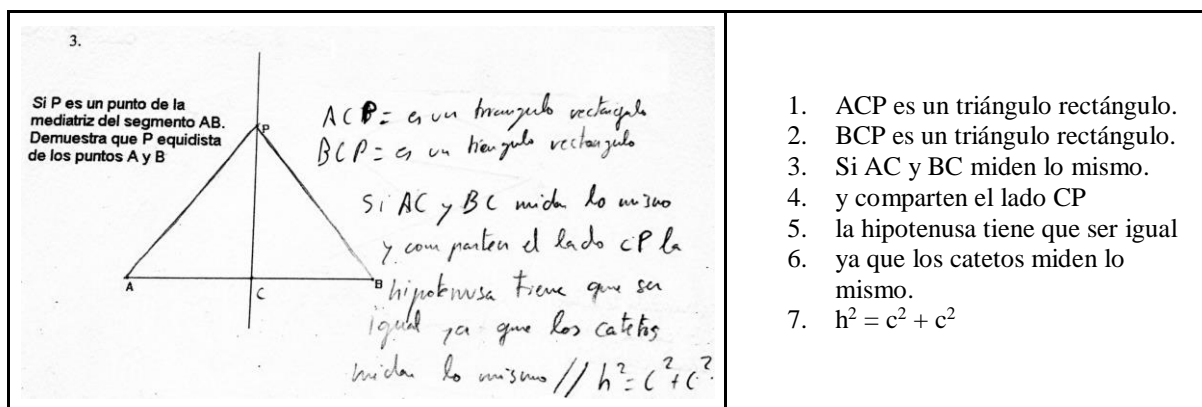 3.
Si P es un punto de la
mediatriz del segmento AB.
Demuestra que P equidista
de los puntos A y B
P
A
C
B
ACP= es un triangulo rectangulo
BCP= es un triengulo rectangulo
Si AC y BC miden lo mismo
y comparten el lado CP la
hipotenusa tiene que ser
igual ya que los catetos
miden lo mismo // h²=c²+c².
1. ACP es un triángulo rectángulo.
2. BCP es un triángulo rectángulo.
3. Si AC y BC miden lo mismo.
4. y comparten el lado CP
5. la hipotenusa tiene que ser igual
6. ya que los catetos miden lo
mismo.
7. h² = c² + c²